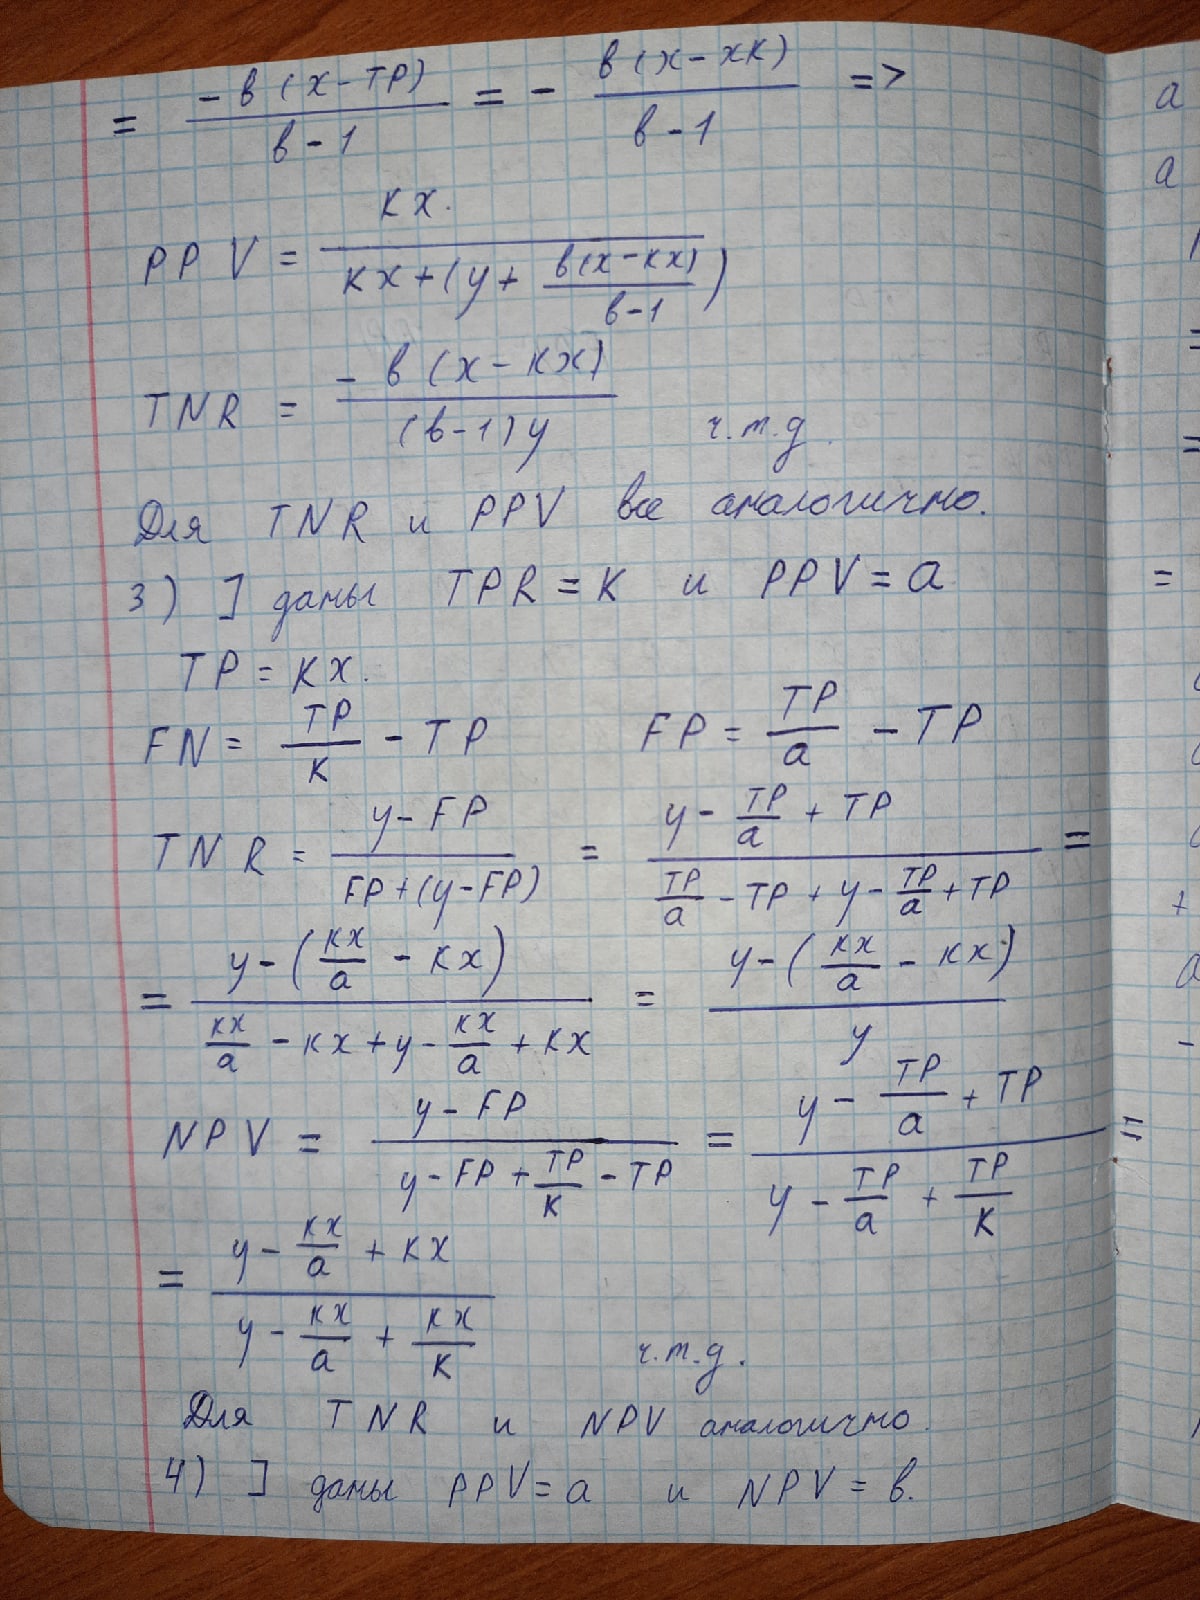 = -в(x-TP)/(в-1) = - в(x-xк)/(в-1) =>
PPV = кx/(кx+(y+ в(x-кx)/(в-1)))
TNR = -в(x-кx)/((в-1)y) ч.т.д.
Для TNR и PPV все аналогично.
3) ] даны TPR = к и PPV = a
TP = кx.
FN = TP/к - TP FP = TP/a - TP
TNR = (y-FP)/(FP+(y-FP)) = (y - TP/a + TP)/(TP/a - TP + y - TP/a + TP) =
= (y-(кx/a - кx))/(кx/a - кx + y - кx/a + кx) = (y-(кx/a - кx))/y
NPV = (y-FP)/(y-FP + TP/к - TP) = (y - TP/a + TP)/(y - TP/a + TP/к) =
= (y - кx/a + кx)/(y - кx/a + кx/к) ч.т.д.
Для TNR и NPV аналогично.
4) ] даны PPV = a и NPV = в.